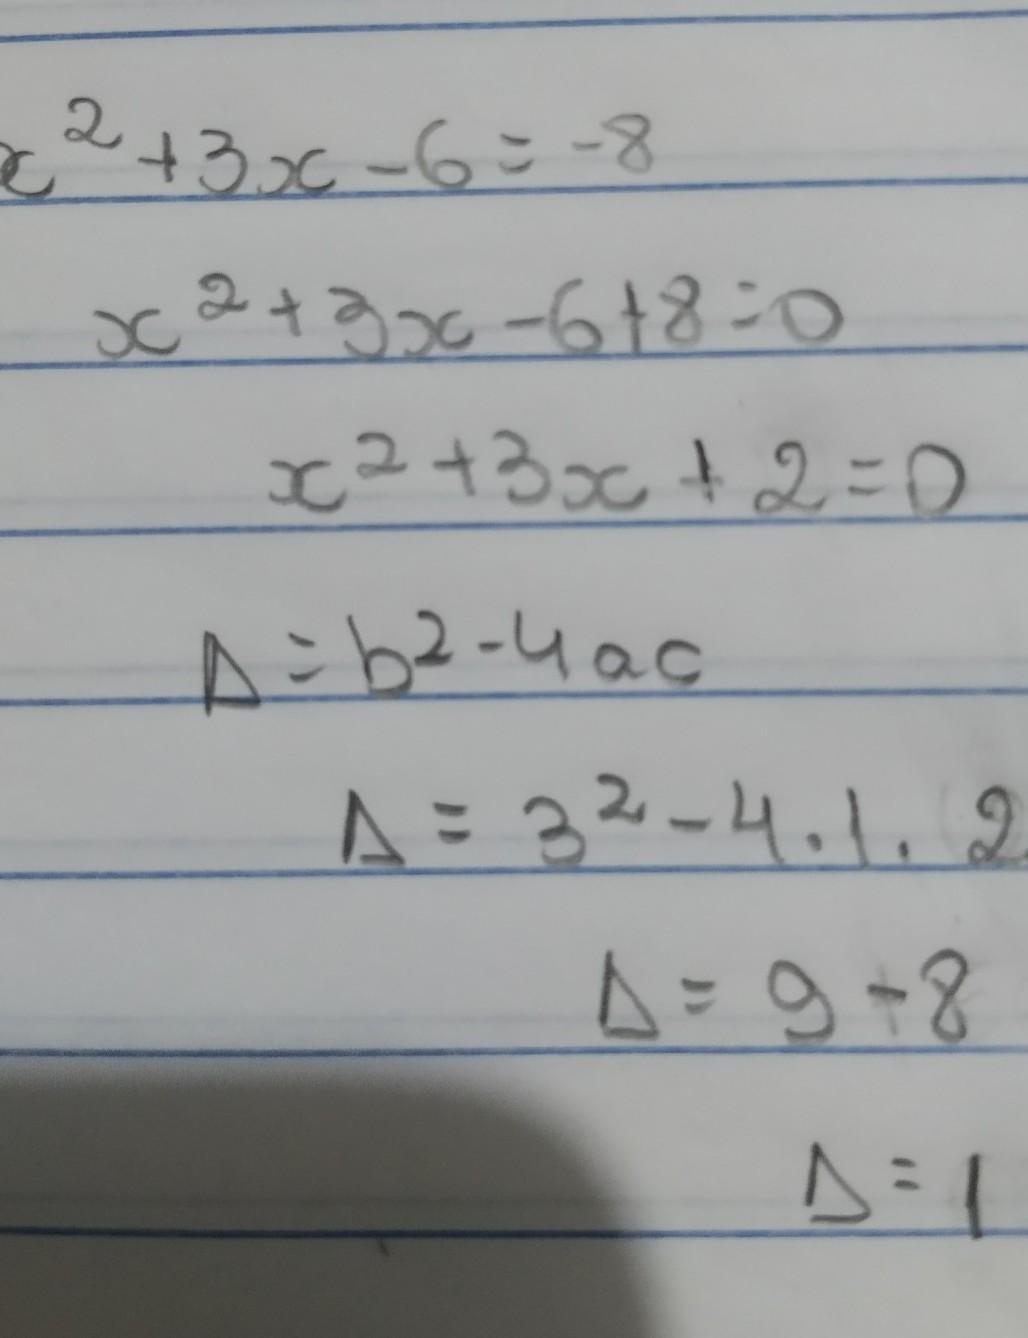 x² + 3x - 6 = -8
x² + 3x - 6 + 8 = 0
x² + 3x + 2 = 0
Δ = b² - 4ac
Δ = 3² - 4 . 1 . 2
Δ = 9 - 8
Δ = 1